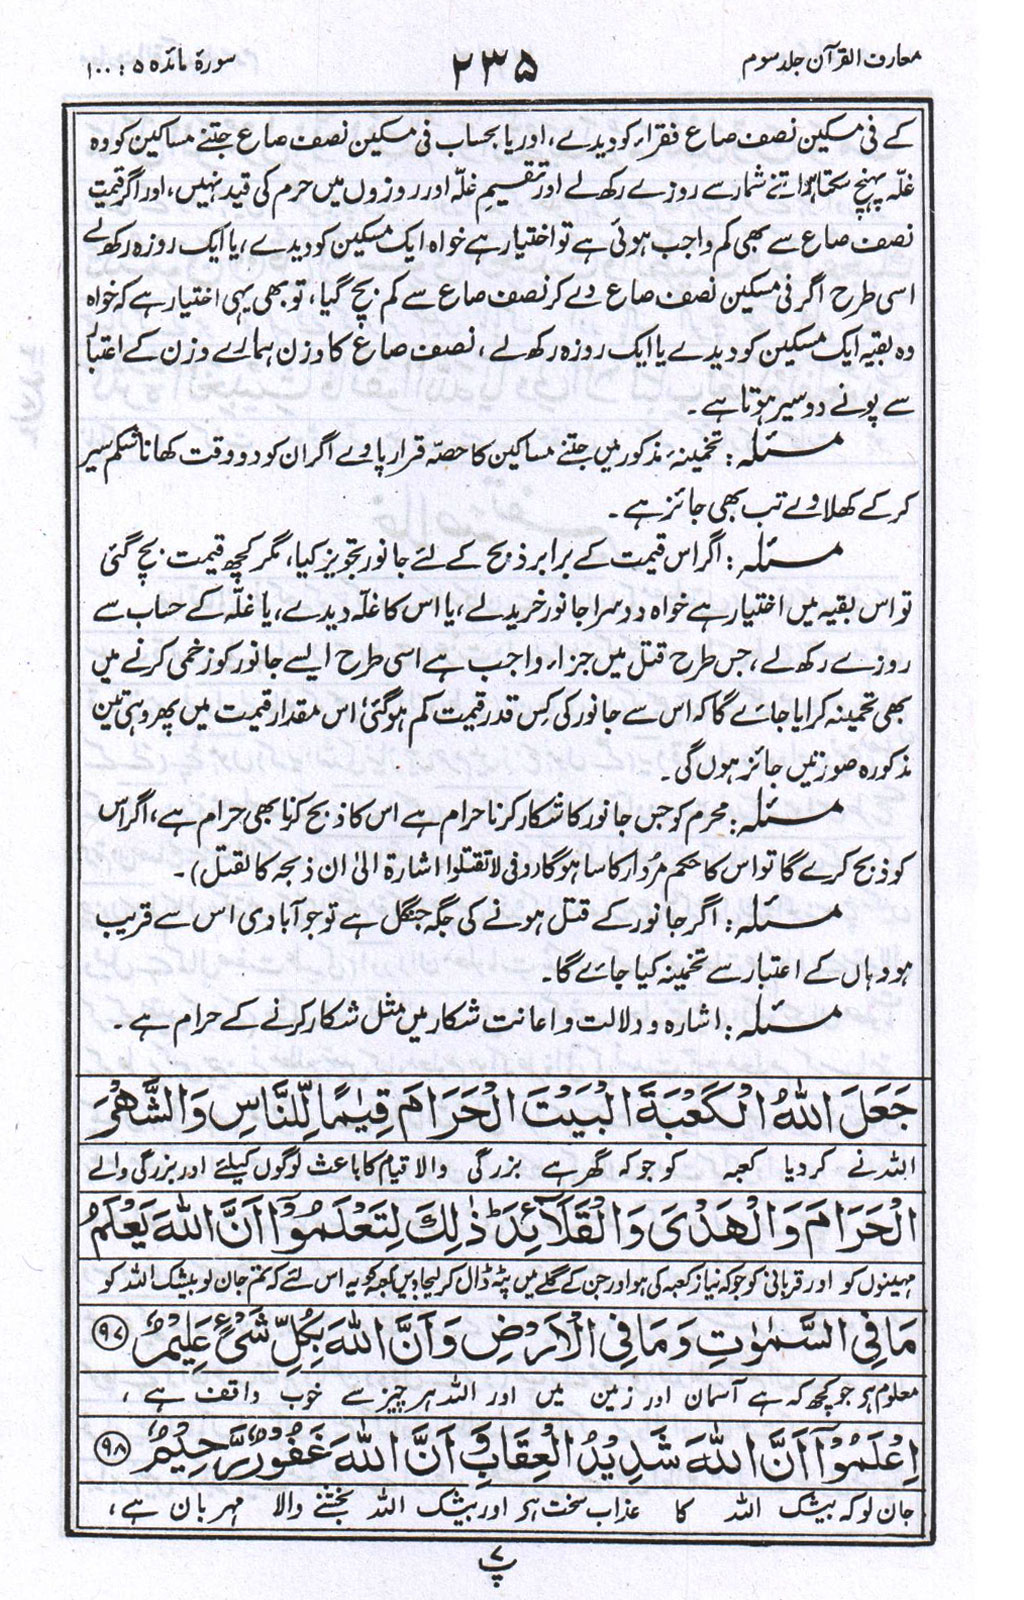 معارف القرآن جلد سوم
۲۳۵
سورۂ مائدہ ۵ : ۱۰۰
کے فی مسکین نصف صاع فقراء کو دیدے، اور یا بحساب فی مسکین نصف صاع جتنے مساکین کو وہ
غلّہ پہنچ سکتا ہو اتنے شمار سے روزے رکھ لے اور تقسیم غلّہ اور روزوں میں حرم کی قید نہیں، اور اگر قیمت
نصف صاع سے بھی کم واجب ہوئی ہے تو اختیار ہے خواہ ایک مسکین کو دیدے، یا ایک روزہ رکھ لے
اسی طرح اگر فی مسکین نصف صاع دے کر نصف صاع سے کم بچ گیا، تو بھی یہی اختیار ہے کہ خواہ
وہ بقیہ ایک مسکین کو دیدے یا ایک روزہ رکھ لے، نصف صاع کا وزن ہمارے وزن کے اعتبار
سے پونے دو سیر ہوتا ہے۔
مسئلہ: تخمینہ مذکور میں جتنے مساکین کا حصّہ قرار پاوے اگر ان کو دو وقت کھانا شکم سیر
کر کے کھلاوے تب بھی جائز ہے۔
مسئلہ: اگر اس قیمت کے برابر ذبح کے لئے جانور تجویز کیا، مگر کچھ قیمت بچ گئی
تو اس بقیہ میں اختیار ہے خواہ دوسرا جانور خرید لے، یا اس کا غلّہ دیدے، یا غلّہ کے حساب سے
روزے رکھ لے، جس طرح قتل میں جزاء واجب ہے اسی طرح ایسے جانور کو زخمی کرنے میں
بھی تخمینہ کرایا جائے گا کہ اس سے جانور کی کس قدر قیمت کم ہوگئی اس مقدار قیمت میں پھر وہی تین
مذکورہ صورتیں جائز ہوں گی۔
مسئلہ: محرم کو جس جانور کا شکار کرنا حرام ہے اس کا ذبح کرنا بھی حرام ہے، اگر اس
کو ذبح کرے گا تو اس کا حکم مُردار کا سا ہوگا (و فی لا تقتلوا اشارۃ الیٰ ان ذبحہ کالقتل)۔
مسئلہ: اگر جانور کے قتل ہونے کی جگہ جنگل ہے تو جو آبادی اس سے قریب
ہو وہاں کے اعتبار سے تخمینہ کیا جائے گا۔
مسئلہ: اشارہ و دلالت و اعانت شکار میں مثل شکار کرنے کے حرام ہے۔
جَعَلَ اللّٰهُ الْكَعْبَةَ الْبَيْتَ الْحَرَامَ قِيٰمًا لِّلنَّاسِ وَالشَّهْرَ
اللہ نے کر دیا کعبہ کو جو کہ گھر ہے بزرگی والا قیام کا باعث لوگوں کیلئے اور بزرگی والے
الْحَرَامَ وَالْهَدْيَ وَالْقَلَآئِدَ ؕ ذٰلِكَ لِتَعْلَمُوْٓا اَنَّ اللّٰهَ يَعْلَمُ
مہینوں کو اور قربانی کو جو کہ نیاز کعبہ کی ہو اور جن کے گلے میں پٹہ ڈال کر لیجاویں کعبہ کو یہ اس لئے کہ تم جان لو بیشک اللہ کو
مَا فِي السَّمٰوٰتِ وَمَا فِي الْاَرْضِ وَاَنَّ اللّٰهَ بِكُلِّ شَيْءٍ عَلِيْمٌ ۹۷
معلوم ہو جو کچھ کہ ہے آسمان اور زمین میں اور اللہ ہر چیز سے خوب واقف ہے،
اِعْلَمُوْٓا اَنَّ اللّٰهَ شَدِيْدُ الْعِقَابِ وَاَنَّ اللّٰهَ غَفُوْرٌ رَّحِيْمٌ ۹۸
جان لو کہ بیشک اللہ کا عذاب سخت ہو اور بیشک اللہ بخشنے والا مہربان ہے،
پ ۷